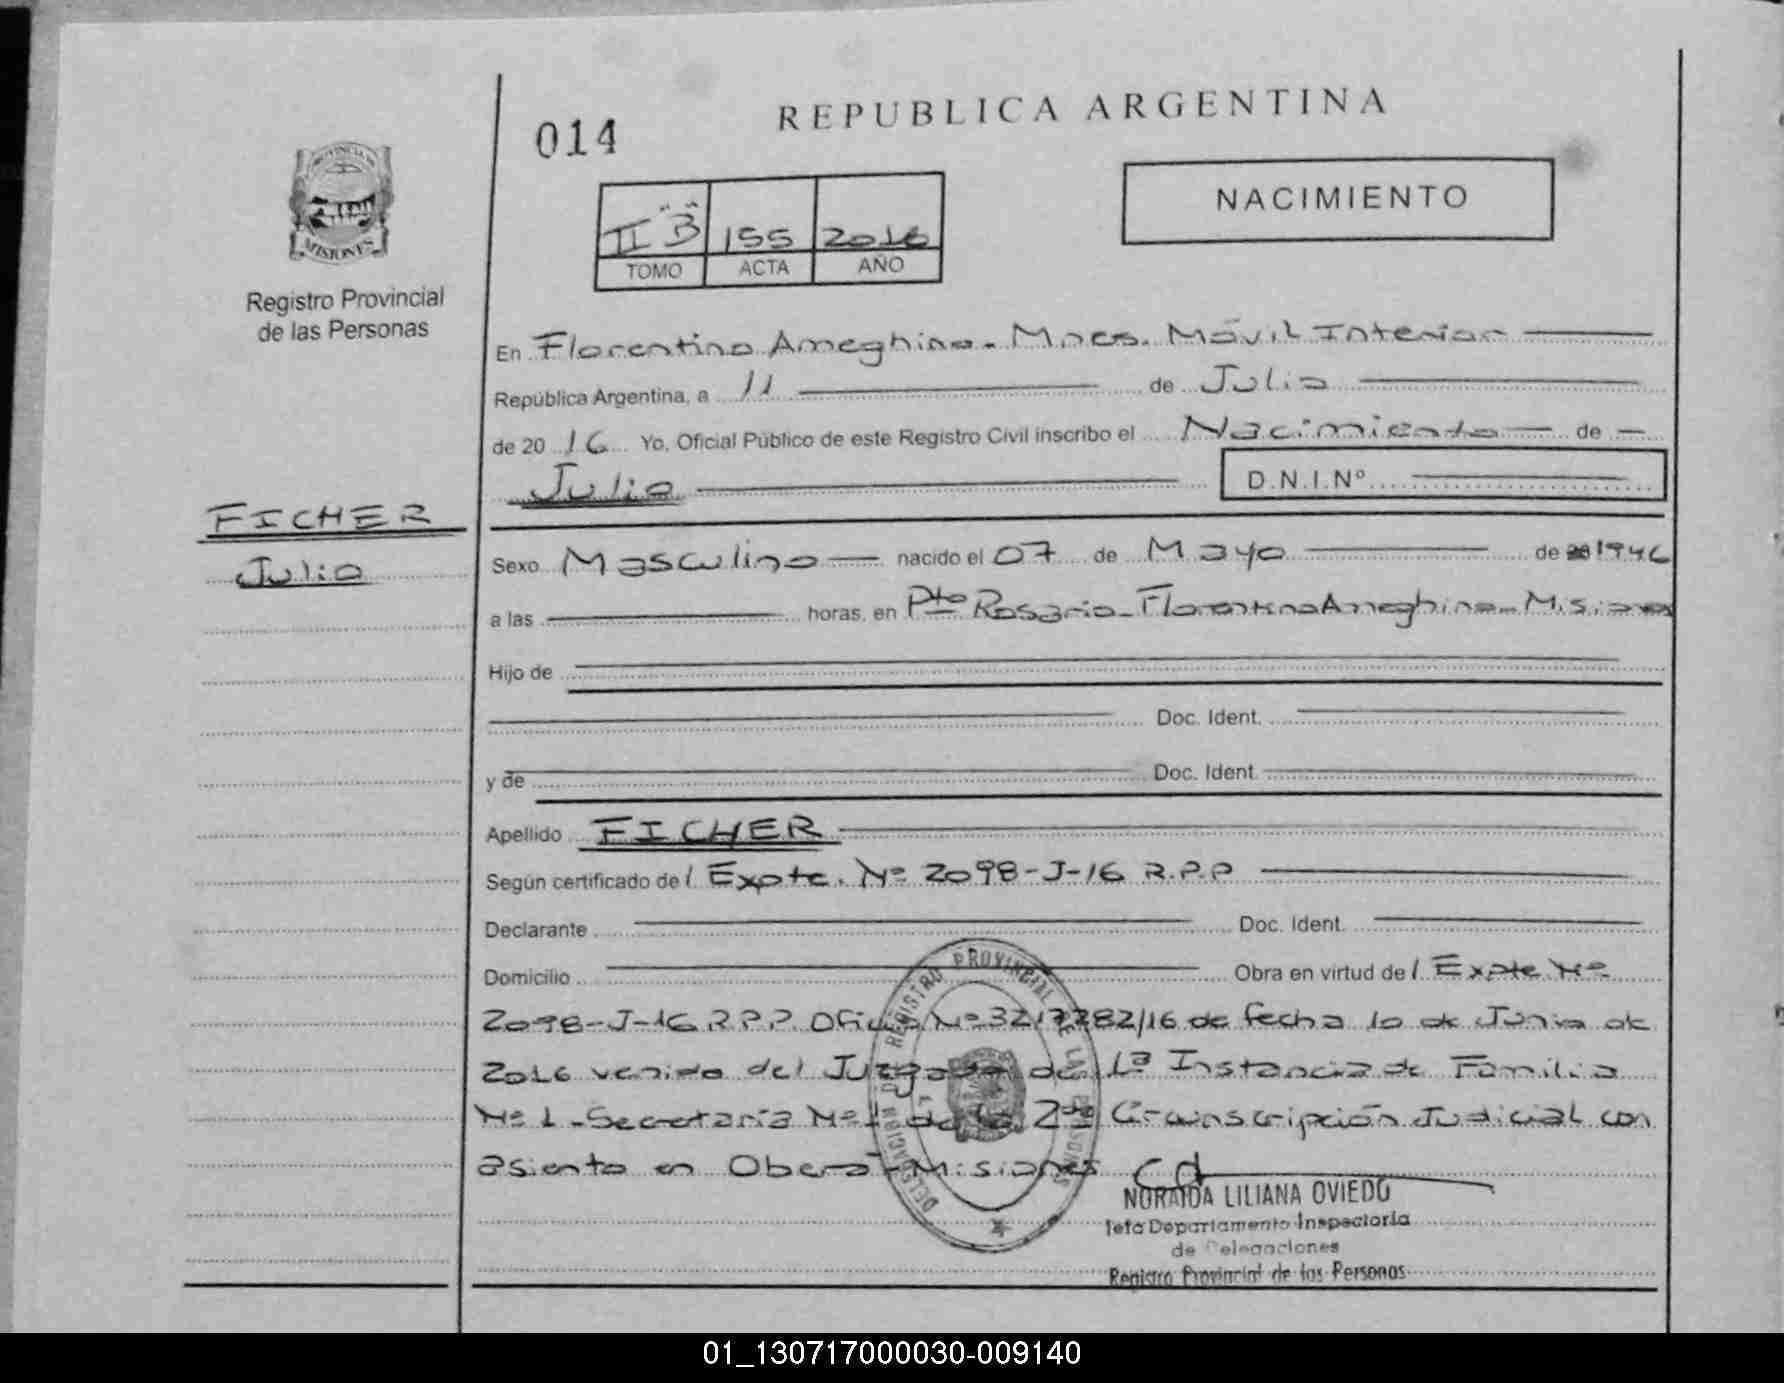 REPUBLICA ARGENTINA
014
NACIMIENTO
II "B" 155 2016
TOMO ACTA AÑO
PROVINCIA DE
MISIONES
Registro Provincial
de las Personas
En Florentino Ameghino - Mnes. Móvil Interior
República Argentina, a 11 de Julio
de 2016 Yo, Oficial Público de este Registro Civil inscribo el Nacimiento de
Julio D.N.I.Nº
FICHER
Julio
Sexo Masculino nacido el 07 de Mayo de 1946
a las horas, en Pto Rosario - Florentino Ameghino - Misiones
Hijo de
Doc. Ident.
y de Doc. Ident.
Apellido FICHER
Según certificado del Expte. Nº 2098-J-16 R.P.P
Declarante Doc. Ident.
Domicilio Obra en virtud del Expte Nº
2098-J-16 R.P.P. Oficio Nº 3217282/16 de fecha 10 de Junio de
2016 venido del Juzgado de 1ª Instancia de Familia
Nº 1 - Secretaría Nº 1 de la 2da Circunscripción Judicial con
asiento en Oberá - Misiones
DELEGACION DE REGISTRO PROVINCIAL DE LAS PERSONAS
NORAIDA LILIANA OVIEDO
Jefa Departamento Inspectoria
de Delegaciones
Registro Provincial de las Personas
01_130717000030-009140